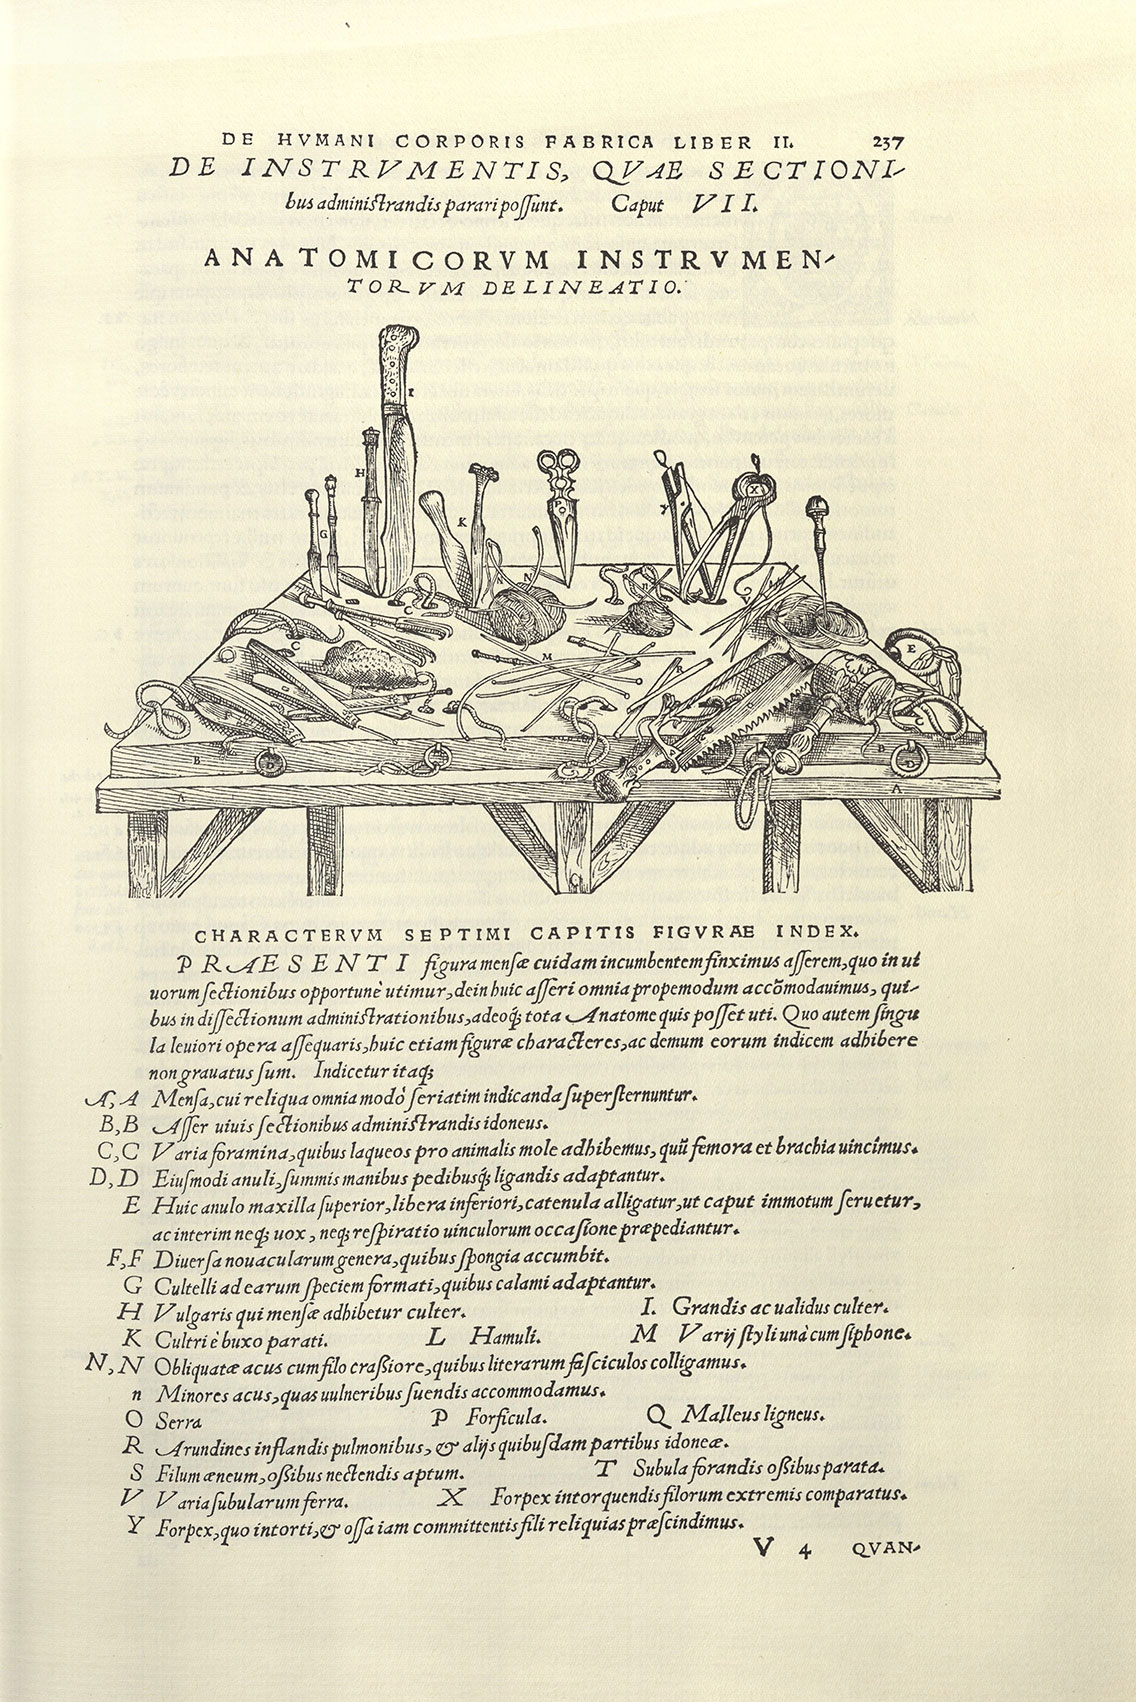 DE HVMANI CORPORIS FABRICA LIBER II. 237
DE INSTRVMENTIS, QVAE SECTIONI-
bus administrandis parari possunt. Caput VII.
ANATOMICORVM INSTRVMEN-
TORVM DELINEATIO.
CHARACTERVM SEPTIMI CAPITIS FIGVRAE INDEX.
PRAESENTI figura mensæ cuidam incumbentem finximus asserem, quo in ui
uorum sectionibus opportunè utimur, dein huic asseri omnia propemodum accõmodauimus, qui-
bus in dissectionum administrationibus, adeoq́; tota Anatome quis posset uti. Quo autem singu
la leuiori opera assequaris, huic etiam figuræ characteres, ac demum eorum indicem adhibere
non grauatus sum. Indicetur itaq;
A, A Mensa, cui reliqua omnia modò seriatim indicanda supersternuntur.
B, B Asser uiuis sectionibus administrandis idoneus.
C, C Varia foramina, quibus laqueos pro animalis mole adhibemus, quũ femora et brachia uincimus.
D, D Eiusmodi anuli, summis manibus pedibusq́; ligandis adaptantur.
E Huic anulo maxilla superior, libera inferiori, catenula alligatur, ut caput immotum seruetur,
ac interim neq; uox, neq; respiratio uinculorum occasione præpediantur.
F, F Diuersa nouacularum genera, quibus spongia accumbit.
G Cultelli ad earum speciem formati, quibus calami adaptantur.
H Vulgaris qui mensæ adhibetur culter. I. Grandis ac ualidus culter.
K Cultri è buxo parati. L Hamuli. M Varij styli unà cum siphone.
N, N Obliquatæ acus cum filo craßiore, quibus literarum fasciculos colligamus.
n Minores acus, quas uulneribus suendis accommodamus.
O Serra P Forficula. Q Malleus ligneus.
R Arundines inflandis pulmonibus, & alijs quibusdam partibus idoneæ.
S Filum æneum, oßibus nectendis aptum. T Subula forandis oßibus parata.
V Varia subularum ferra. X Forpex intorquendis filorum extremis comparatus.
Y Forpex, quo intorti, & ossa iam committentis fili reliquias præscindimus.
V 4 QVAN-